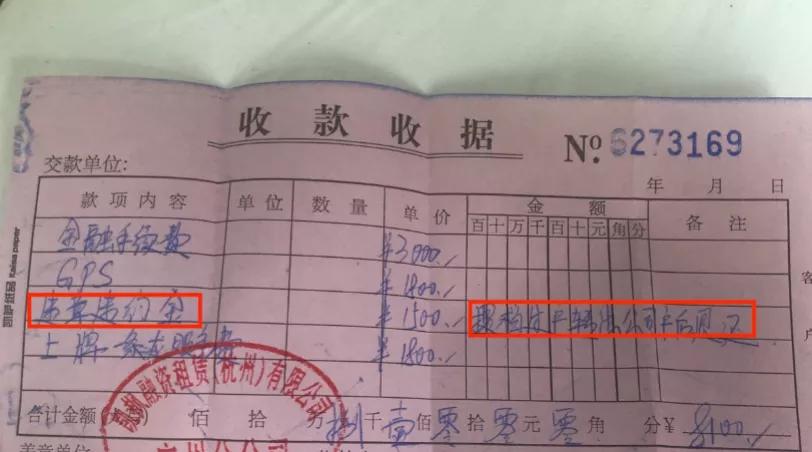 收款收据
No. 6273169
交款单位:
年 月 日
款项内容 单位 数量 单价 金额 备注
百 十 万 千 百 十 元 角 分
金融手续费 ¥3000./
GPS ¥1800./
违章违约金 ¥1500./
上牌一条龙服务费 ¥1800./
融资租赁(杭州)有限公司
合计金额 佰 拾 万 捌 千 壹 佰 零 拾 零 元 零 角 分 ¥ 8100./
客
户